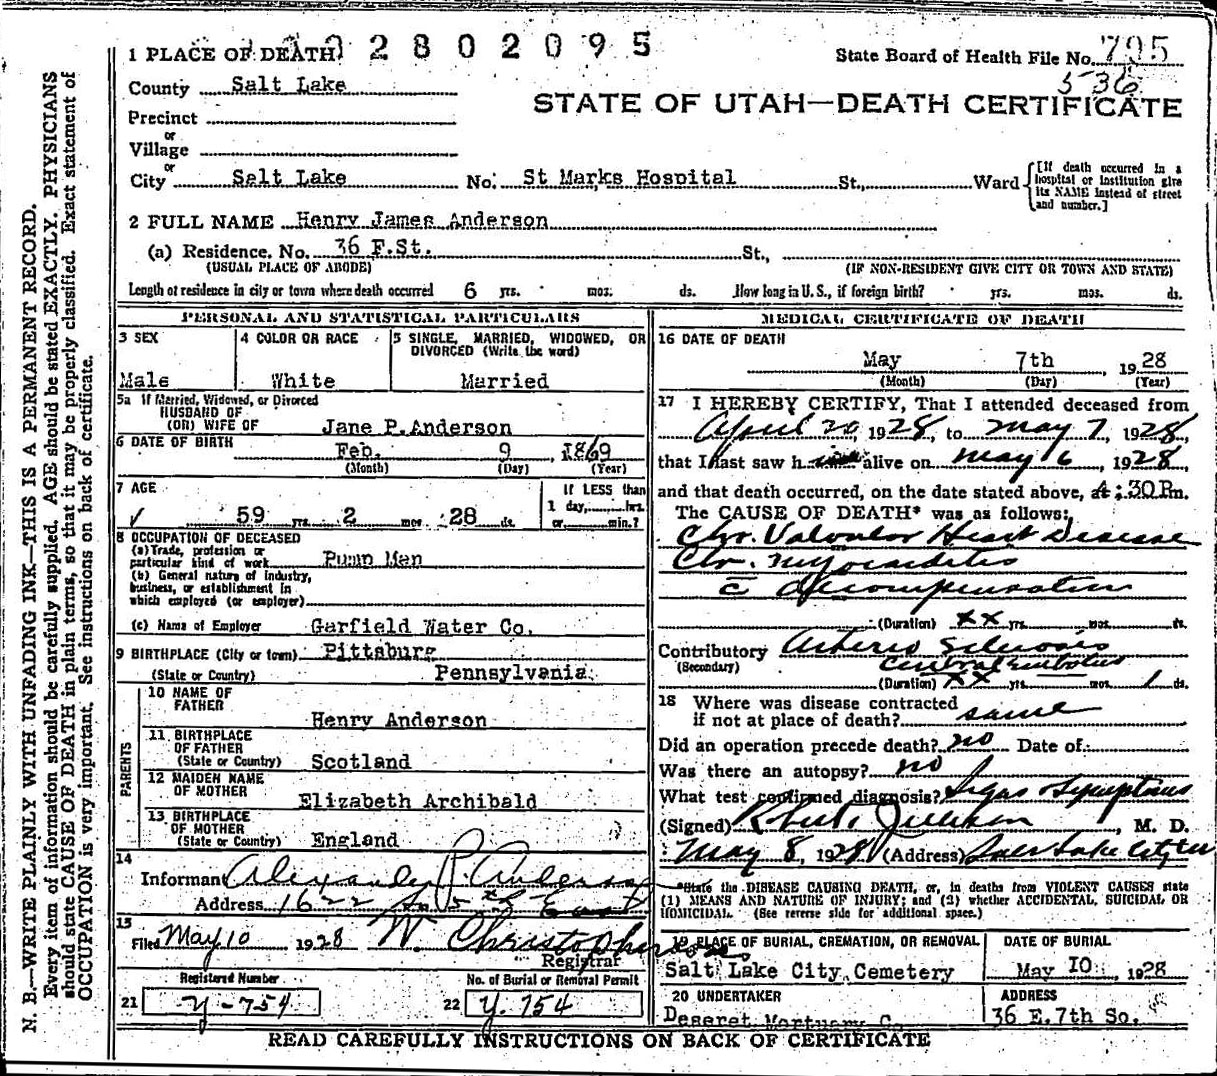 N. B.—WRITE PLAINLY WITH UNFADING INK—THIS IS A PERMANENT RECORD.
Every item of information should be carefully supplied. AGE should be stated EXACTLY. PHYSICIANS
should state CAUSE OF DEATH in plain terms, so that it may be properly classified. Exact statement of
OCCUPATION is very important. See instructions on back of certificate.
1 PLACE OF DEATH 2 8 0 2 0 9 5
State Board of Health File No. 795
536
County Salt Lake
STATE OF UTAH—DEATH CERTIFICATE
Precinct
or
Village
or
City Salt Lake No. St Marks Hospital St., Ward
[If death occurred in a
hospital or institution give
its NAME instead of street
and number.]
2 FULL NAME Henry James Anderson
(a) Residence. No. 36 F.St. St.,
(USUAL PLACE OF ABODE) (IF NON-RESIDENT GIVE CITY OR TOWN AND STATE)
Length of residence in city or town where death occurred 6 yrs. mos. ds. How long in U. S., if foreign birth? yrs. mos. ds.
PERSONAL AND STATISTICAL PARTICULARS
3 SEX
Male
4 COLOR OR RACE
White
5 SINGLE, MARRIED, WIDOWED, OR
DIVORCED (Write the word)
Married
5a If Married, Widowed, or Divorced
HUSBAND OF
(OR) WIFE OF Jane P. Anderson
6 DATE OF BIRTH Feb. 9, 1869
(Month) (Day) (Year)
7 AGE
✓ 59 yrs. 2 mos. 28 ds.
If LESS than
1 day, hrs.
or min.?
8 OCCUPATION OF DECEASED
(a) Trade, profession or
particular kind of work Pump Man
(b) General nature of industry,
business, or establishment in
which employed (or employer)
(c) Name of Employer Garfield Water Co.
9 BIRTHPLACE (City or town) Pittsburg
(State or Country) Pennsylvania
PARENTS
10 NAME OF
FATHER
Henry Anderson
11 BIRTHPLACE
OF FATHER
(State or Country) Scotland
12 MAIDEN NAME
OF MOTHER
Elizabeth Archibald
13 BIRTHPLACE
OF MOTHER
(State or Country) England
14
Informant Alexander P. Anderson
Address 1622 So 5th East
15
Filed May 10 1928 W. Christopherson
Registrar
Registered Number
21 Y-754
No. of Burial or Removal Permit
22 Y. 754
MEDICAL CERTIFICATE OF DEATH
16 DATE OF DEATH
May 7th 1928
(Month) (Day) (Year)
17 I HEREBY CERTIFY, That I attended deceased from
April 20, 1928, to May 7, 1928,
that I last saw him alive on May 6, 1928,
and that death occurred, on the date stated above, at 4:30 P.m.
The CAUSE OF DEATH* was as follows:
Chr. Valvular Heart Disease
Chr. Myocarditis
c̄ decompensation
(Duration) xx yrs. mos. ds.
Contributory Arterio Sclerosis
(Secondary) Cerebral embolus
(Duration) xx yrs. mos. 1 ds.
18 Where was disease contracted
if not at place of death? same
Did an operation precede death? no Date of:
Was there an autopsy? no
What test confirmed diagnosis? Signs & Symptoms
(Signed) Robert, M. D.
May 8, 1928 (Address) Salt Lake City
*State the DISEASE CAUSING DEATH, or, in deaths from VIOLENT CAUSES state
(1) MEANS AND NATURE OF INJURY; and (2) whether ACCIDENTAL, SUICIDAL OR
HOMICIDAL. (See reverse side for additional space.)
19 PLACE OF BURIAL, CREMATION, OR REMOVAL
Salt Lake City Cemetery
DATE OF BURIAL
May 10 1928
20 UNDERTAKER
Deseret Mortuary Co.
ADDRESS
36 E. 7th So.
READ CAREFULLY INSTRUCTIONS ON BACK OF CERTIFICATE